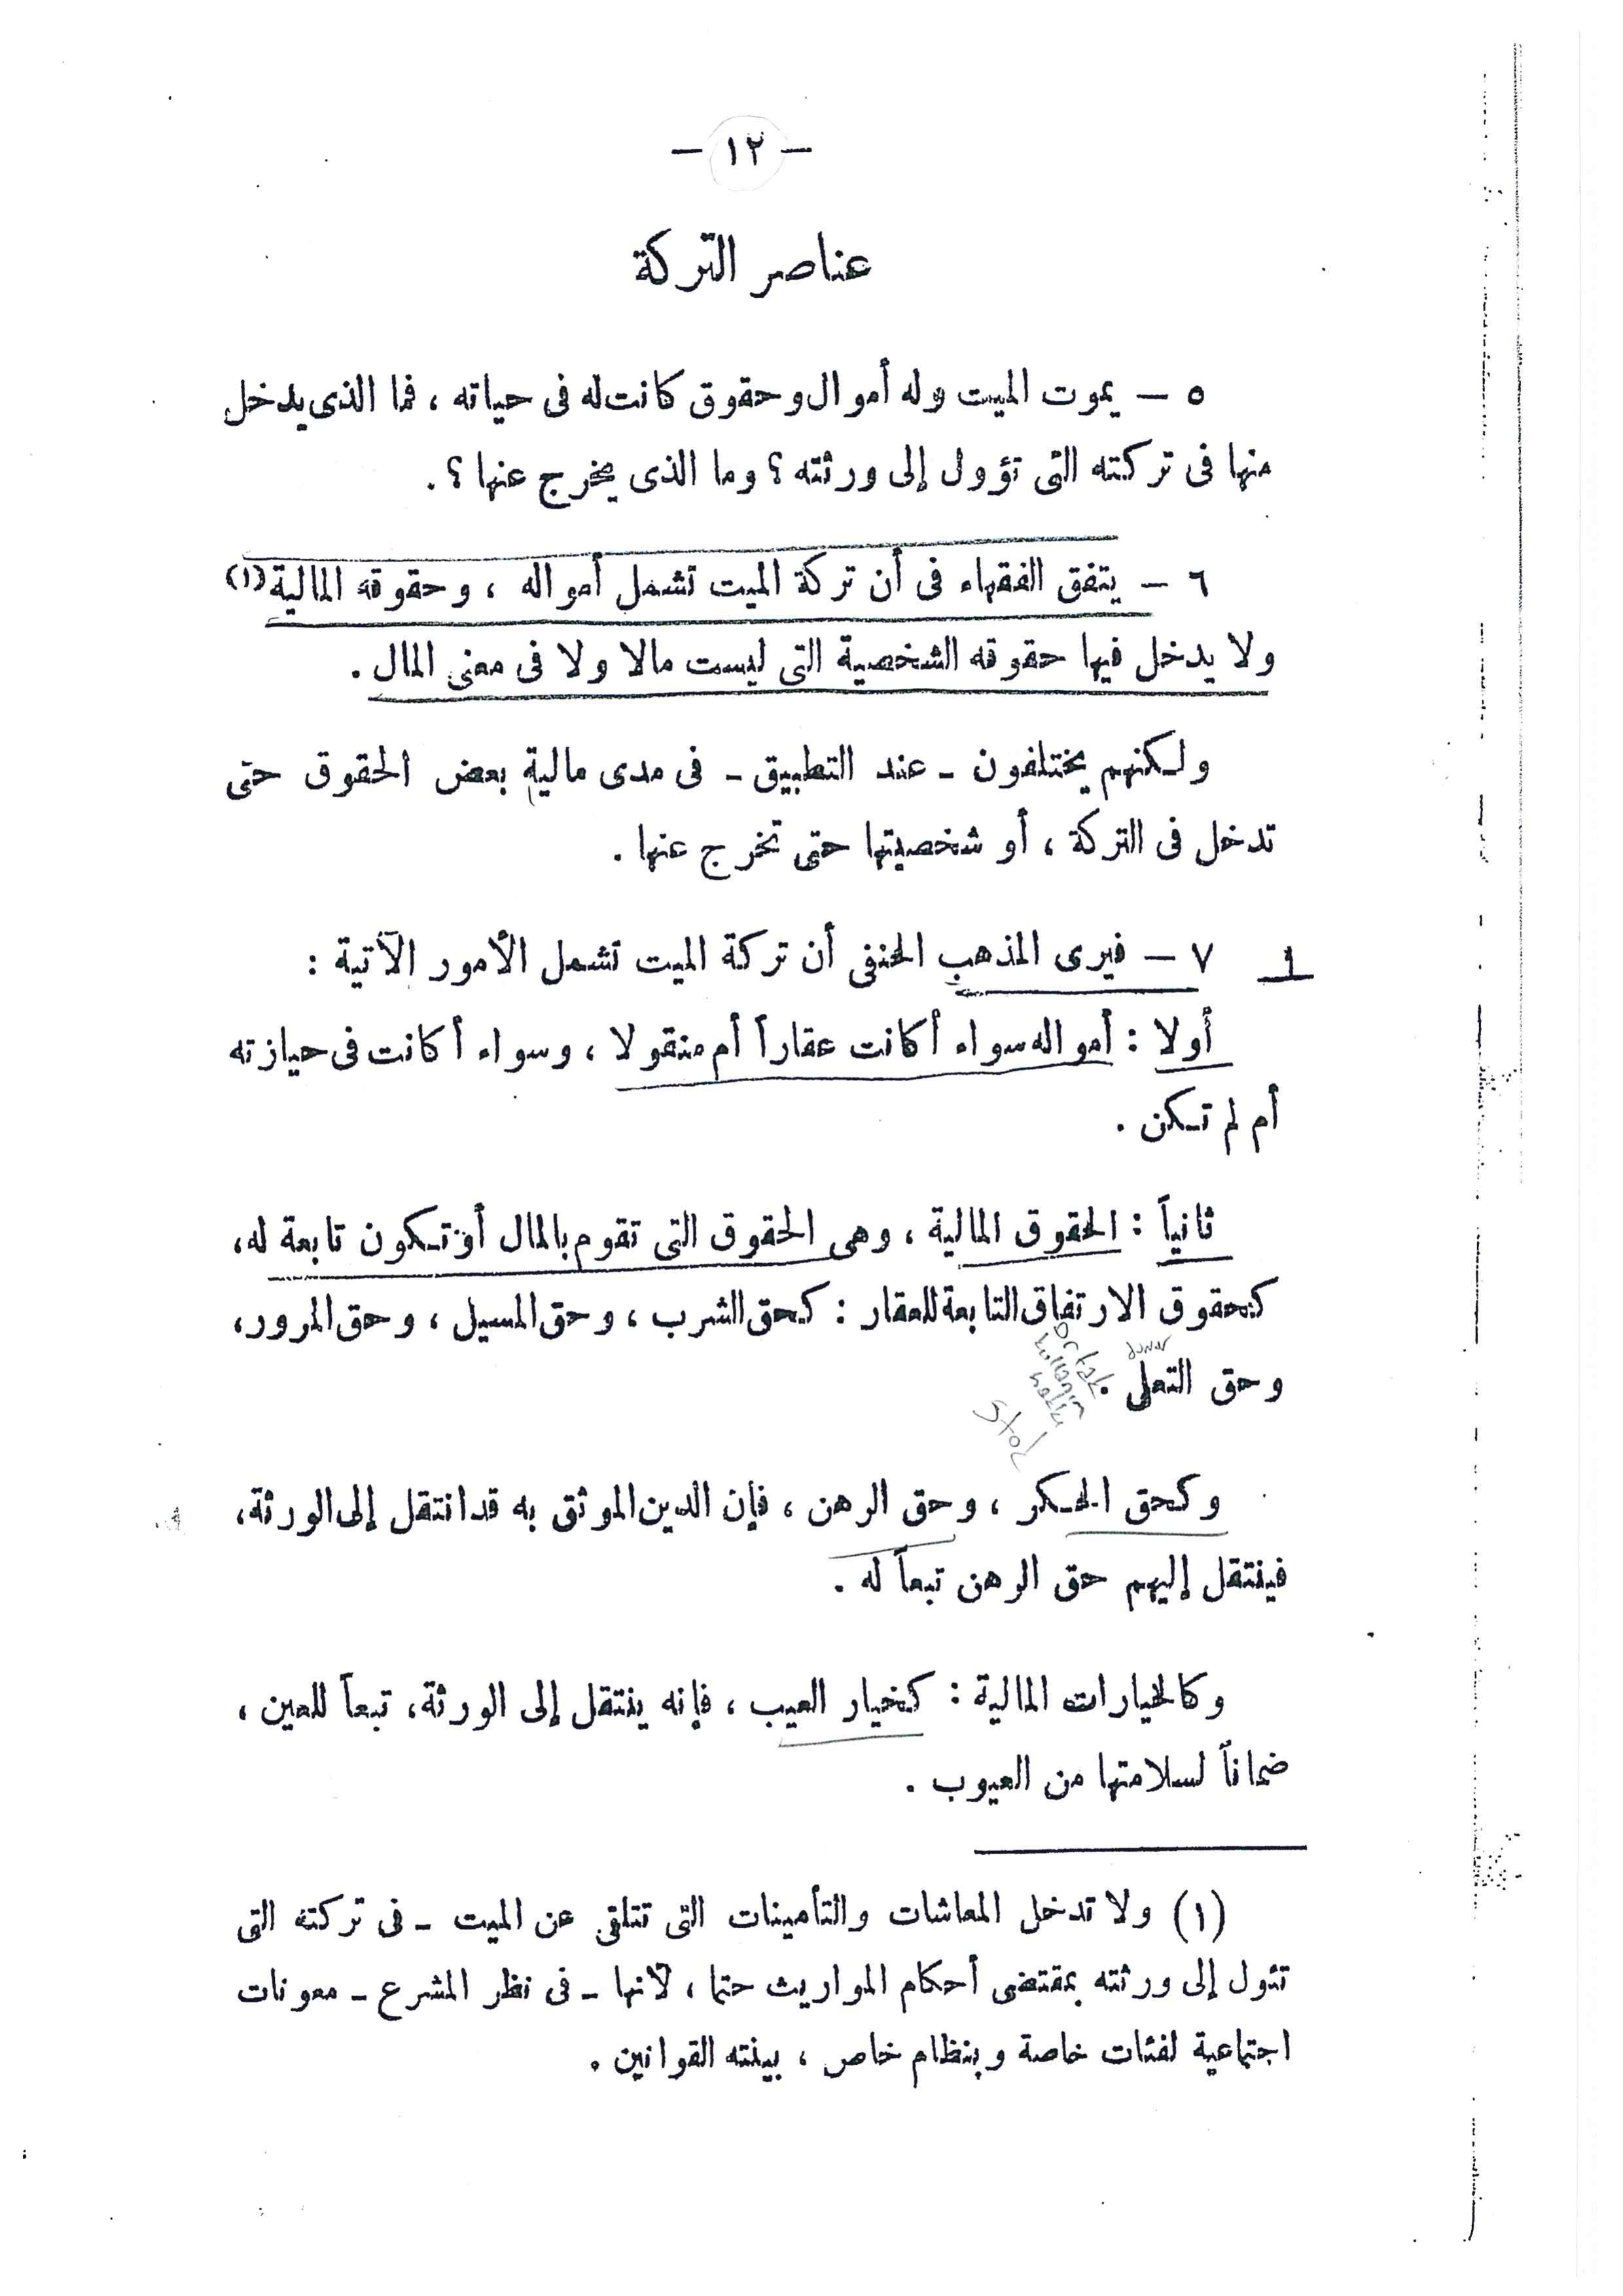 — ١٢ —
عناصر التركة
٥ — يموت الميت وله أموال وحقوق كانت له فى حياته ، فما الذى يدخل
منها فى تركته التى تؤول إلى ورثته ؟ وما الذى يخرج عنها ؟ .
٦ — يتفق الفقهاء فى أن تركة الميت تشمل أمواله ، وحقوقه المالية (١)
ولا يدخل فيها حقوقه الشخصية التى ليست مالا ولا فى معنى المال .
ولكنهم يختلفون - عند التطبيق - فى مدى مالية بعض الحقوق حتى
تدخل فى التركة ، أو شخصيتها حتى تخرج عنها .
1 ٧ — فيرى المذهب الحنفى أن تركة الميت تشمل الأمور الآتية :
أولا : أمواله سواء أكانت عقاراً أم منقولا ، وسواء أكانت فى حيازته
أم لم تكن .
ثانياً : الحقوق المالية ، وهى الحقوق التى تقوم بالمال أو تكون تابعة له ،
كحقوق الارتفاق التابعة للعقار : كحق الشرب ، وحق المسيل ، وحق المرور ،
وحق التعلى .
وكحق الحكر ، وحق الرهن ، فإن الدين الموثق به قد انتقل إلى الورثة ،
فينتقل إليهم حق الرهن تبعاً له .
وكالخيارات المالية : كخيار العيب ، فإنه ينتقل إلى الورثة ، تبعاً للعين ،
ضماناً لسلامتها من العيوب .
(١) ولا تدخل المعاشات والتأمينات التى تتلقى عن الميت - فى تركته التى
تئول إلى ورثته بمقتضى أحكام المواريث حتما ، لأنها - فى نظر المشرع - معونات
اجتماعية لفئات خاصة وبنظام خاص ، بينته القوانين .